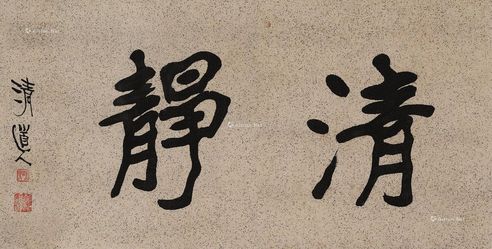 清靜
清道人